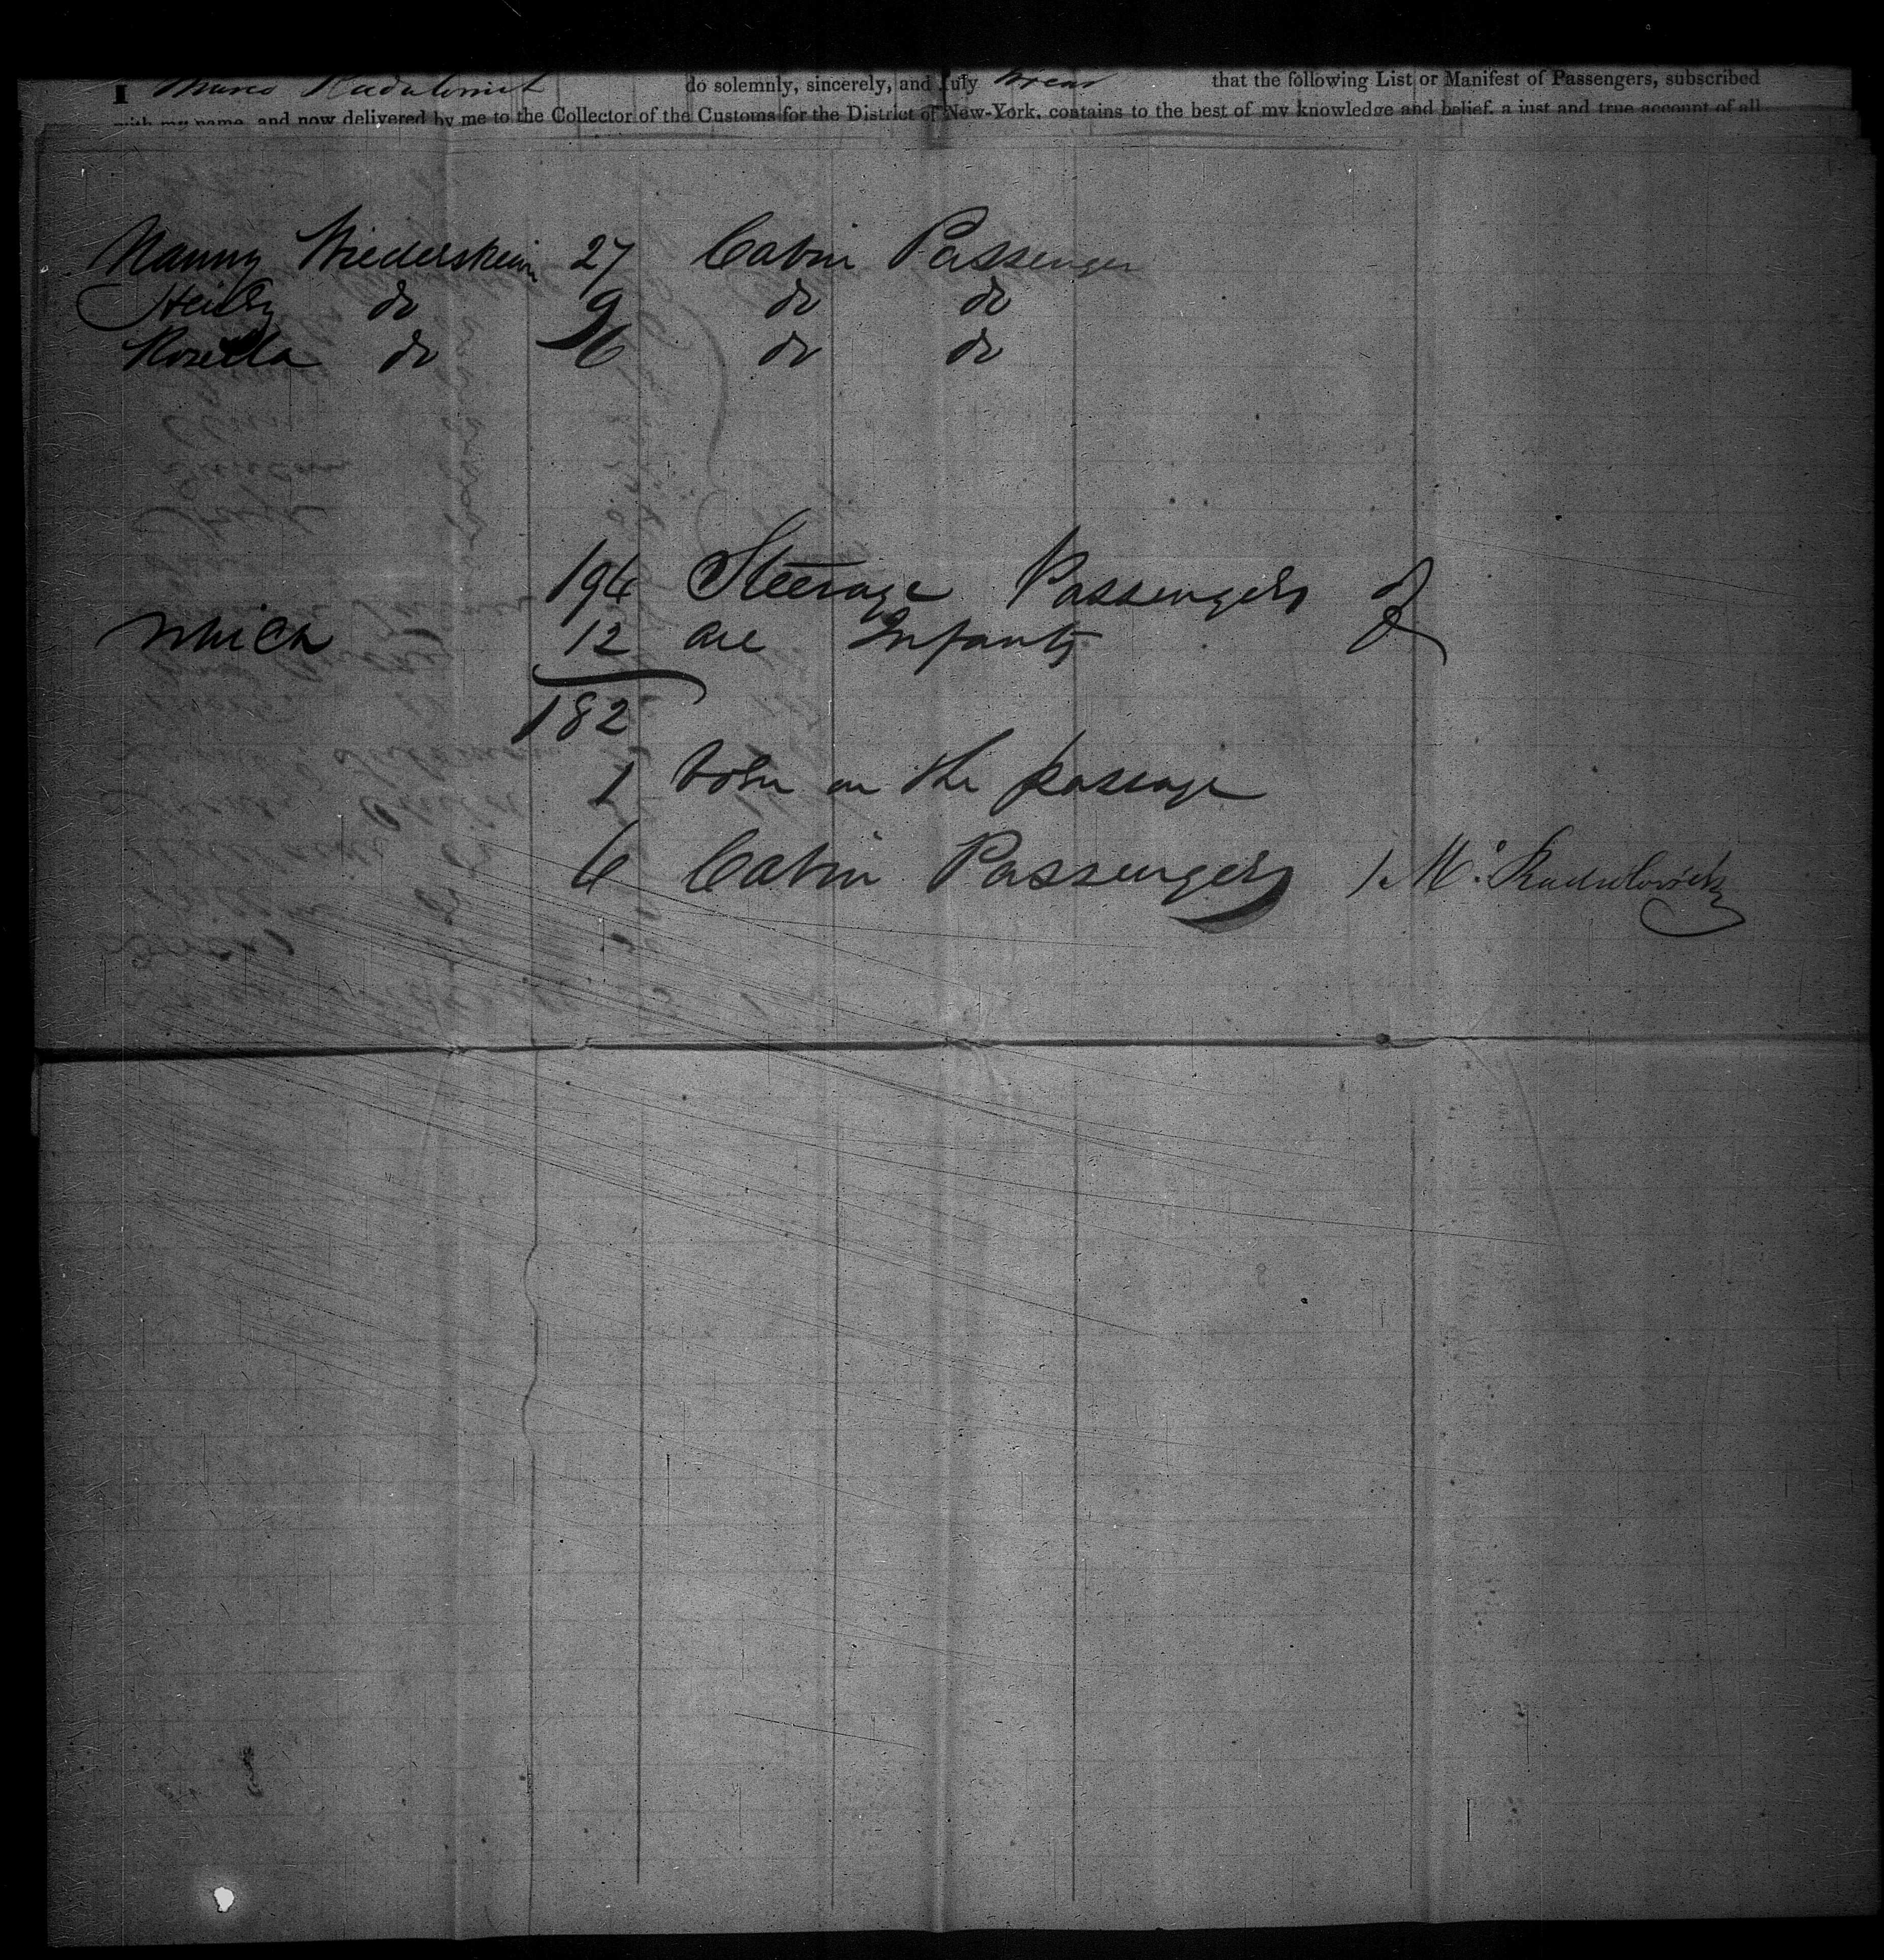 I Marco Radulovich do solemnly, sincerely, and truly swear that the following List or Manifest of Passengers, subscribed
with my name, and now delivered by me to the Collector of the Customs for the District of New-York, contains to the best of my knowledge and belief, a just and true account of all
Nanny Niederskein 27 Cabin Passenger
do 9 do do
Rosella do 6 do do
194 Steerage Passengers of
which 12 are Infants
182
1 born on the passage
6 Cabin Passengers / M. Radulovich